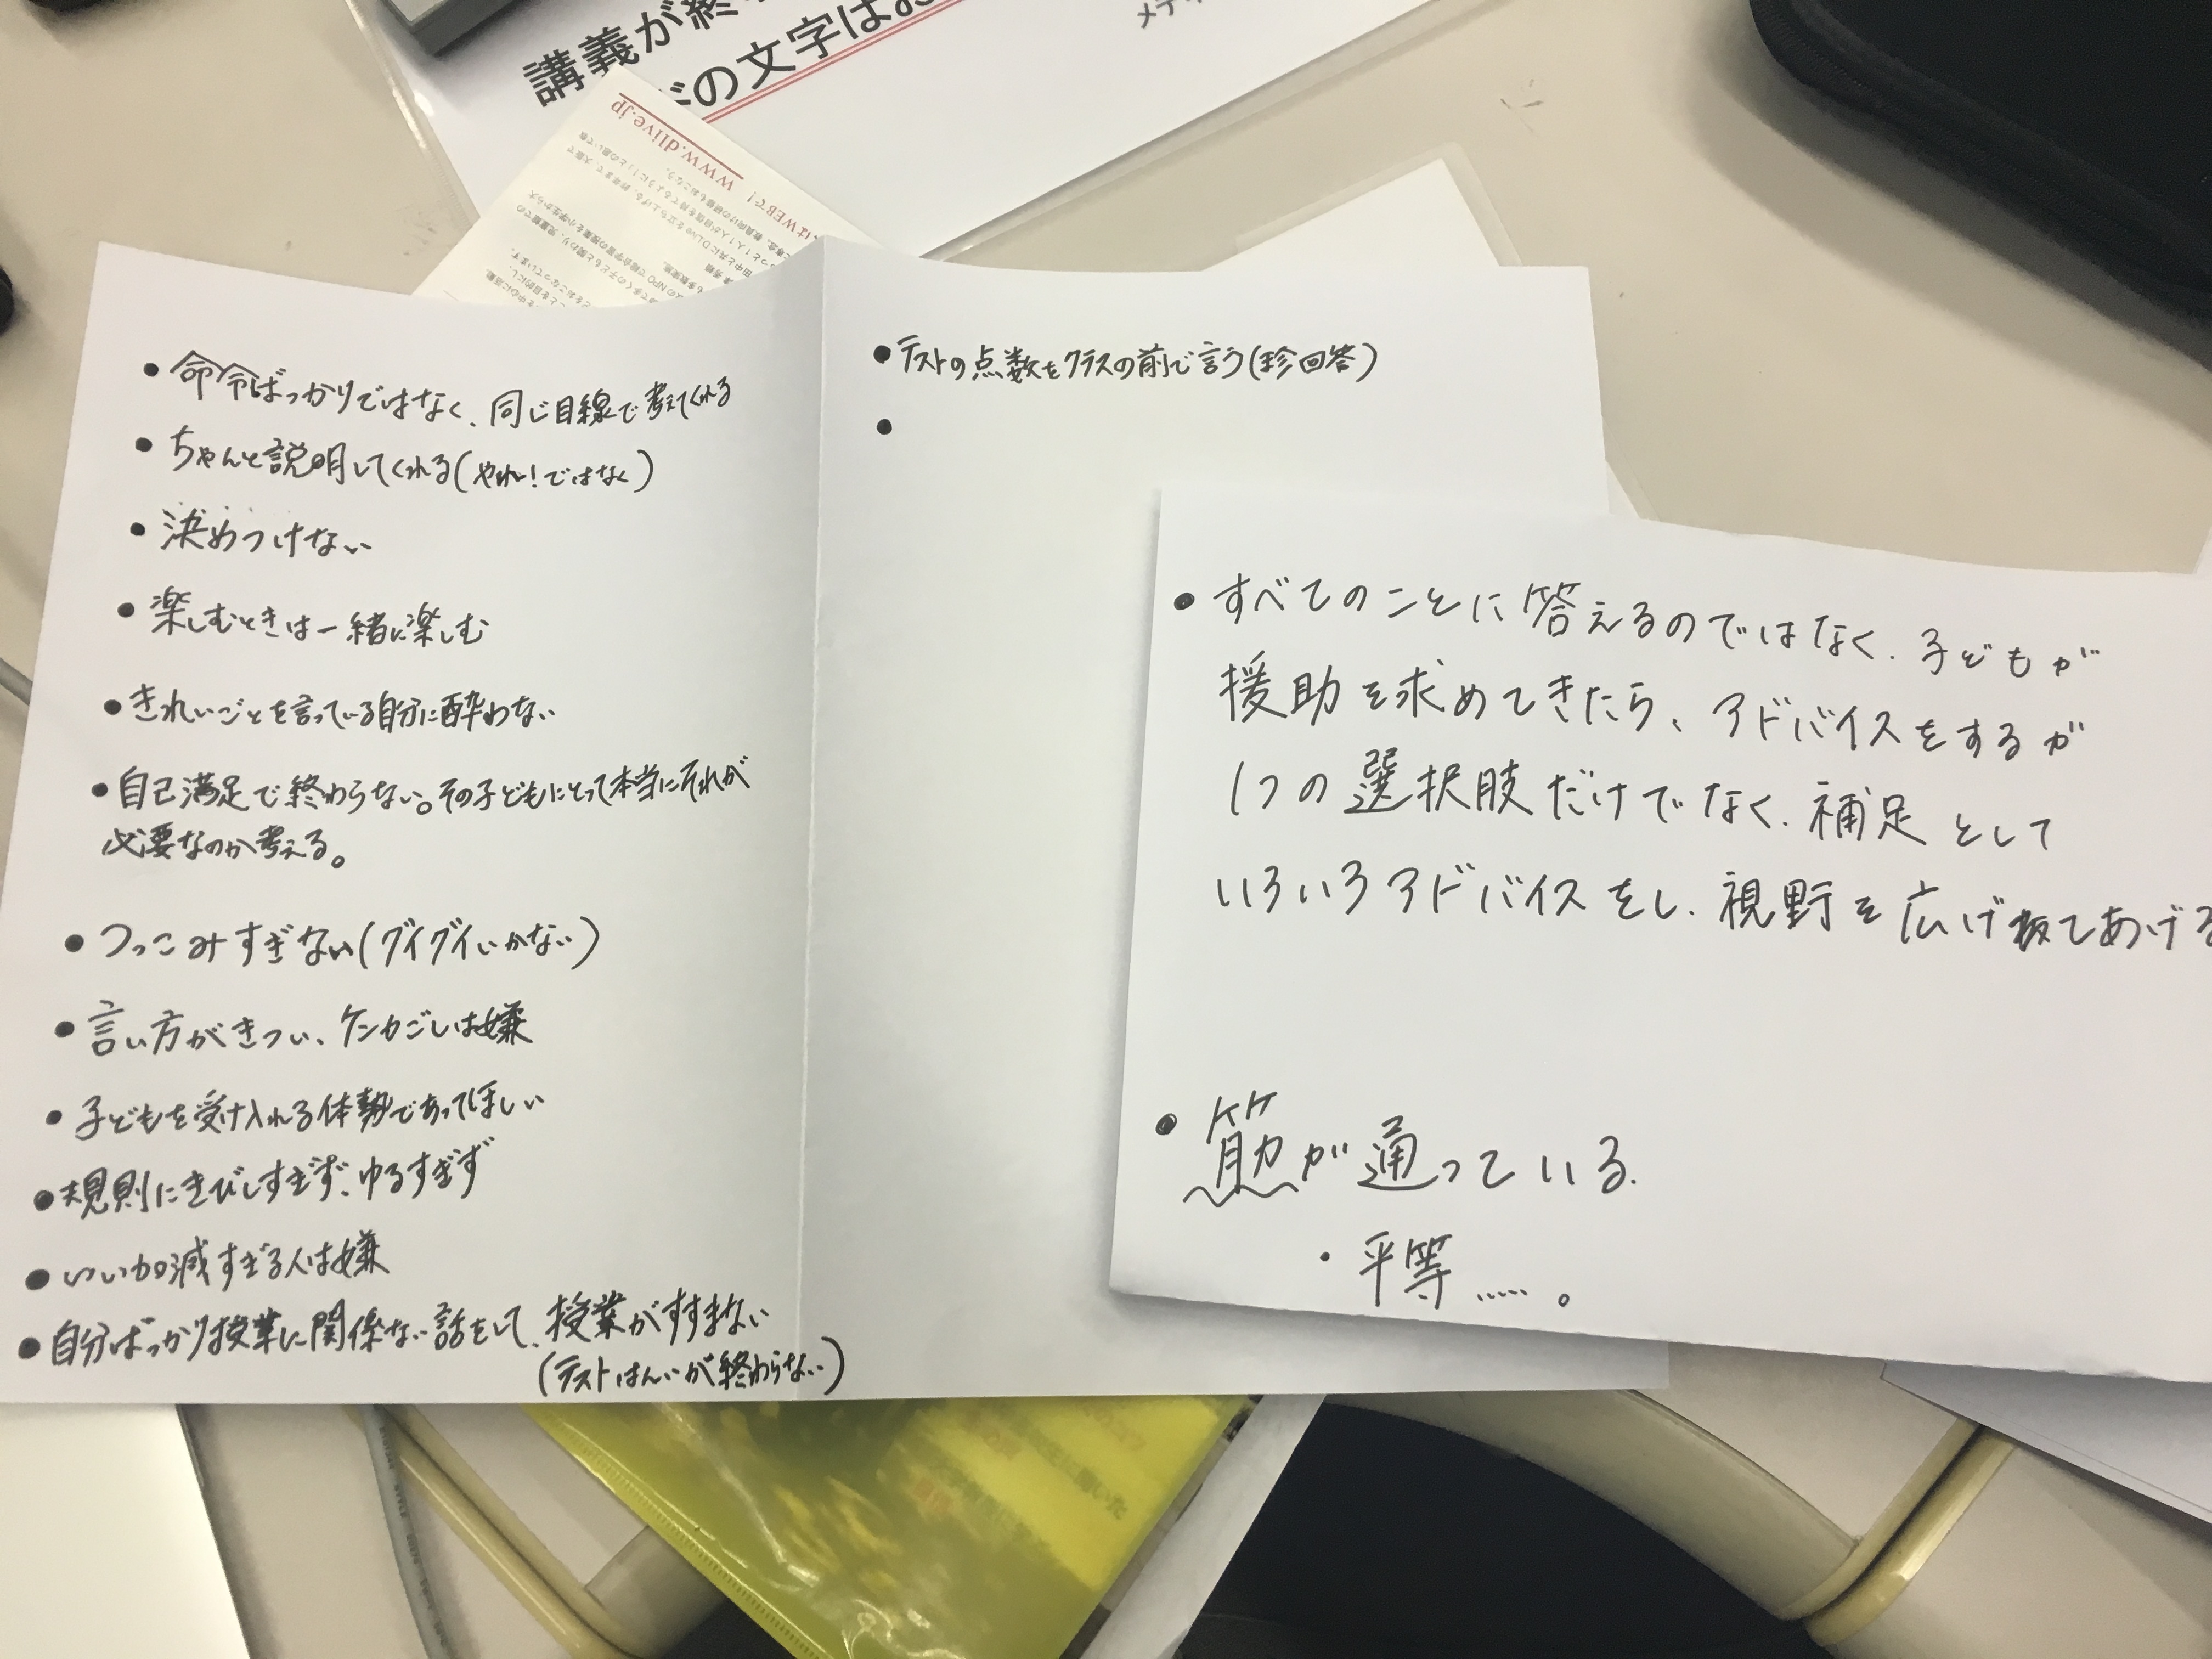 講義が終
ドの文字はお
メディ
www.dlive.jp
はWEBで!
・命令ばっかりではなく、同じ目線で考えてくれる
・ちゃんと説明してくれる(やれ!ではなく)
・決めつけない
・楽しむときは一緒に楽しむ
・きれいごとを言っている自分に酔わない
・自己満足で終わらない。その子どもにとって本当にそれが
必要なのか考える。
・つっこみすぎない(グイグイいかない)
・言い方がきつい、ケンカごしは嫌
・子どもを受け入れる体勢であってほしい
・規則にきびしすぎず、ゆるすぎず
・いい加減すぎる人は嫌
・自分ばっかり授業に関係ない話をして、授業がすすまない
(テストはんいが終わらない)
・テストの点数をクラスの前で言う(珍回答)
・
・すべてのことに答えるのではなく、子どもが
援助を求めてきたら、アドバイスをするが
1つの選択肢だけでなく、補足として
いろいろアドバイスをし、視野を広げてあげる
・筋が通っている.
・平等……。